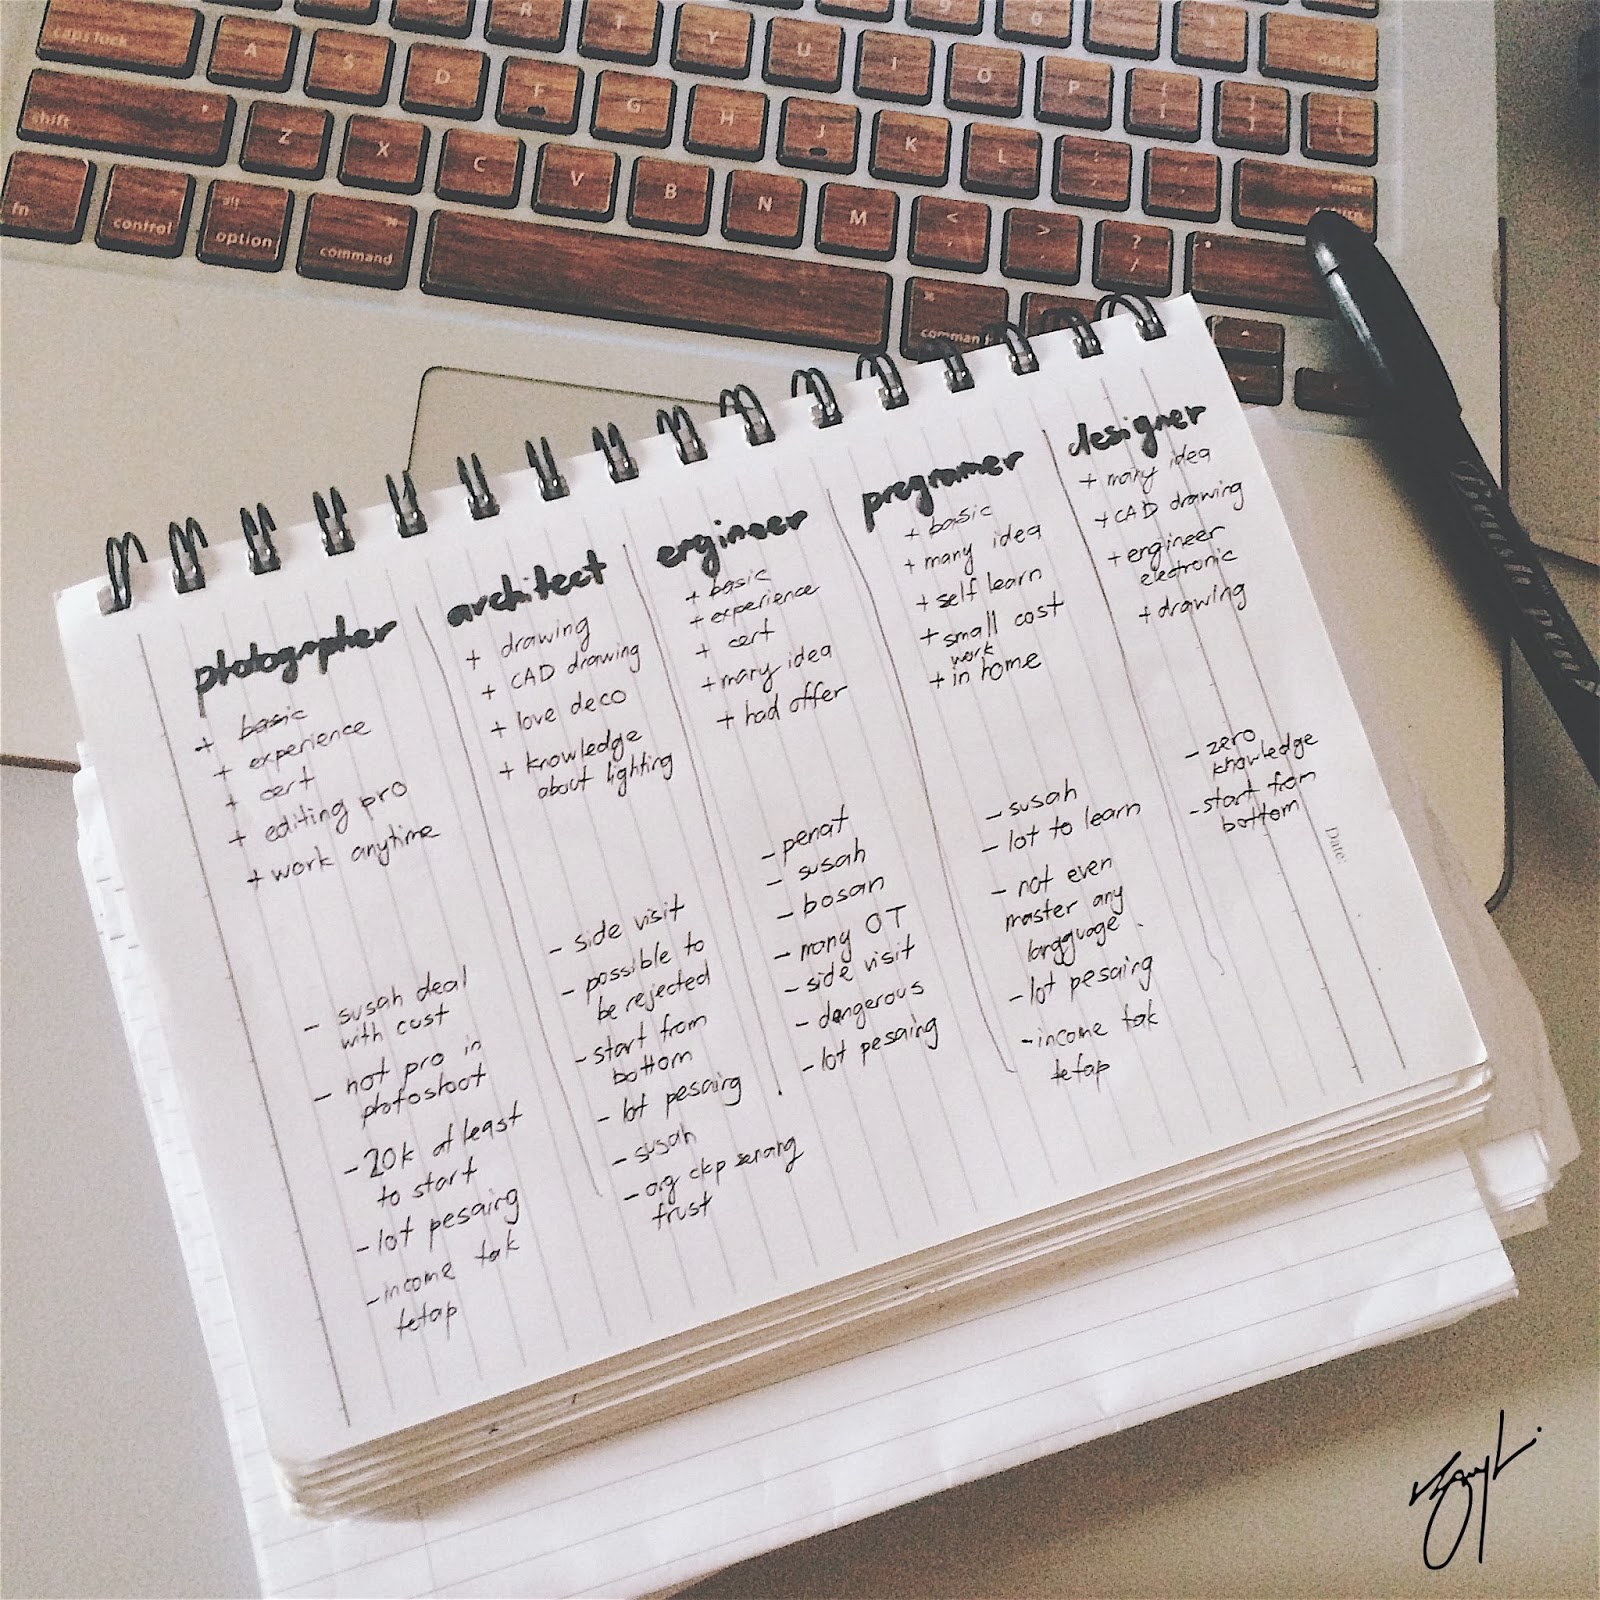 caps lock A S D F G H J K L delete
shift Z X C V B N M < , > . ? / enter return
fn control alt option command command
R T Y U I O P
photographer
+ basic
+ experience
+ cert
+ editing pro
+ work anytime
- susah deal
with cust
- not pro in
photoshoot
- 20k at least
to start
- lot pesaing
- income tak
tetap
architect
+ drawing
+ CAD drawing
+ love deco
+ knowledge
about lighting
- side visit
- possible to
be rejected
- start from
bottom
- lot pesaing
- susah
- org ckp senang
trust
engineer
+ basic
+ experience
+ cert
+ many idea
+ had offer
- penat
- susah
- bosan
- many OT
- side visit
- dangerous
- lot pesaing
programer
+ basic
+ many idea
+ self learn
+ small cost
work
+ in home
- susah
- lot to learn
- not even
master any
langguage.
- lot pesaing
- income tak
tetap
designer
+ many idea
+ CAD drawing
+ engineer
electronic
+ drawing
- zero
knowledge
- start from
bottom
Date: